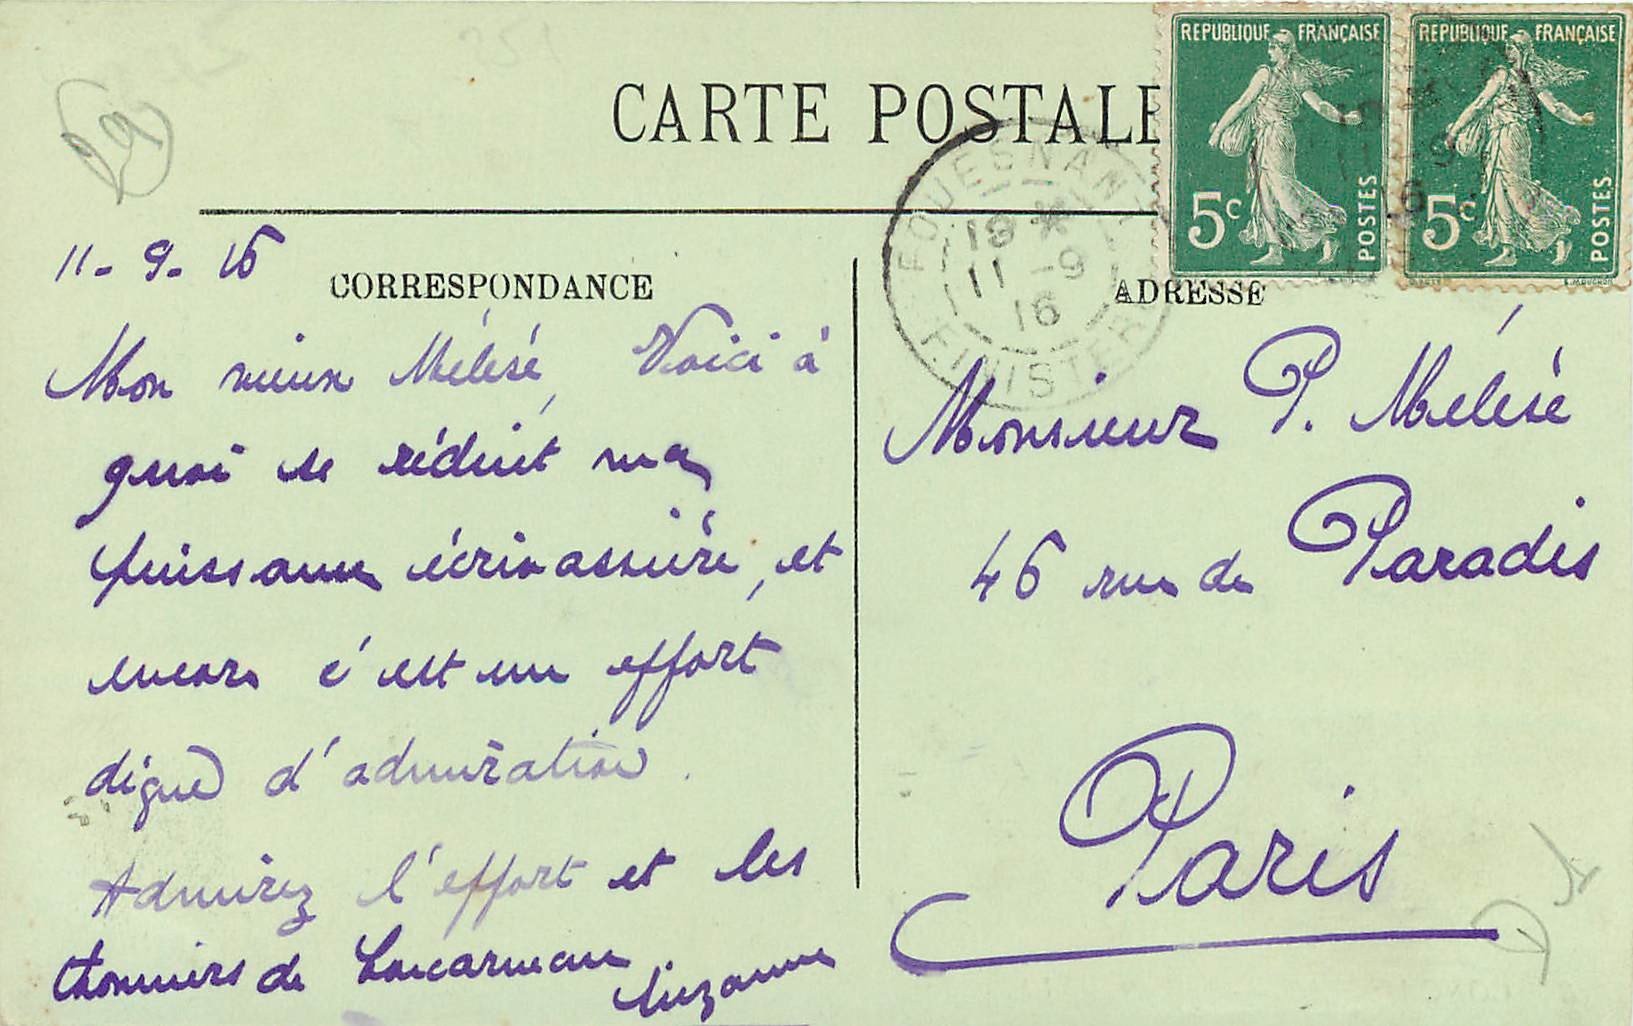 CARTE POSTALE
REPUBLIQUE FRANÇAISE
5c
POSTES
REPUBLIQUE FRANÇAISE
5c
POSTES
FOUESNANT
19 *
11 -9
16
FINISTERE
CORRESPONDANCE
ADRESSE
11-9-16
Mon vieux Mélésé, Voici à
quoi se réduit ma
puissance écrivassière, et
encore c'est un effort
digne d'admiration.
Admirez l'effort et les
thonniers de Concarneau
Suzanne
Monsieur P. Mélésé
46 rue de Paradis
Paris